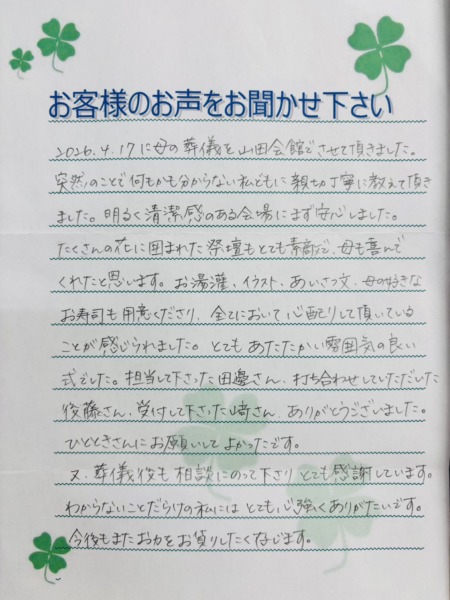 お客様のお声をお聞かせ下さい
2026.4.17に母の葬儀を山田会館でさせて頂きました。
突然のことで何もかも分からない私どもに親切丁寧に教えて頂き
ました。明るく清潔感のある会場にまず安心しました。
たくさんの花に囲まれた祭壇もとても素敵で、母も喜んで
くれたと思います。お湯灌、イラスト、あいさつ文、母の好きな
お寿司も用意くださり、全てにおいて心配りして頂いている
ことが感じられました。とてもあたたかい雰囲気の良い
式でした。担当して下さった田邉さん、打ち合わせしていただいた
後藤さん、受付して下さった山崎さん、ありがとうございました。
ひとときさんにお願いしてよかったです。
又、葬儀後も相談にのって下さりとても感謝しています。
わからないことだらけの私にはとても心強くありがたいです。
今後もまたお力をお貸りしたくなります。